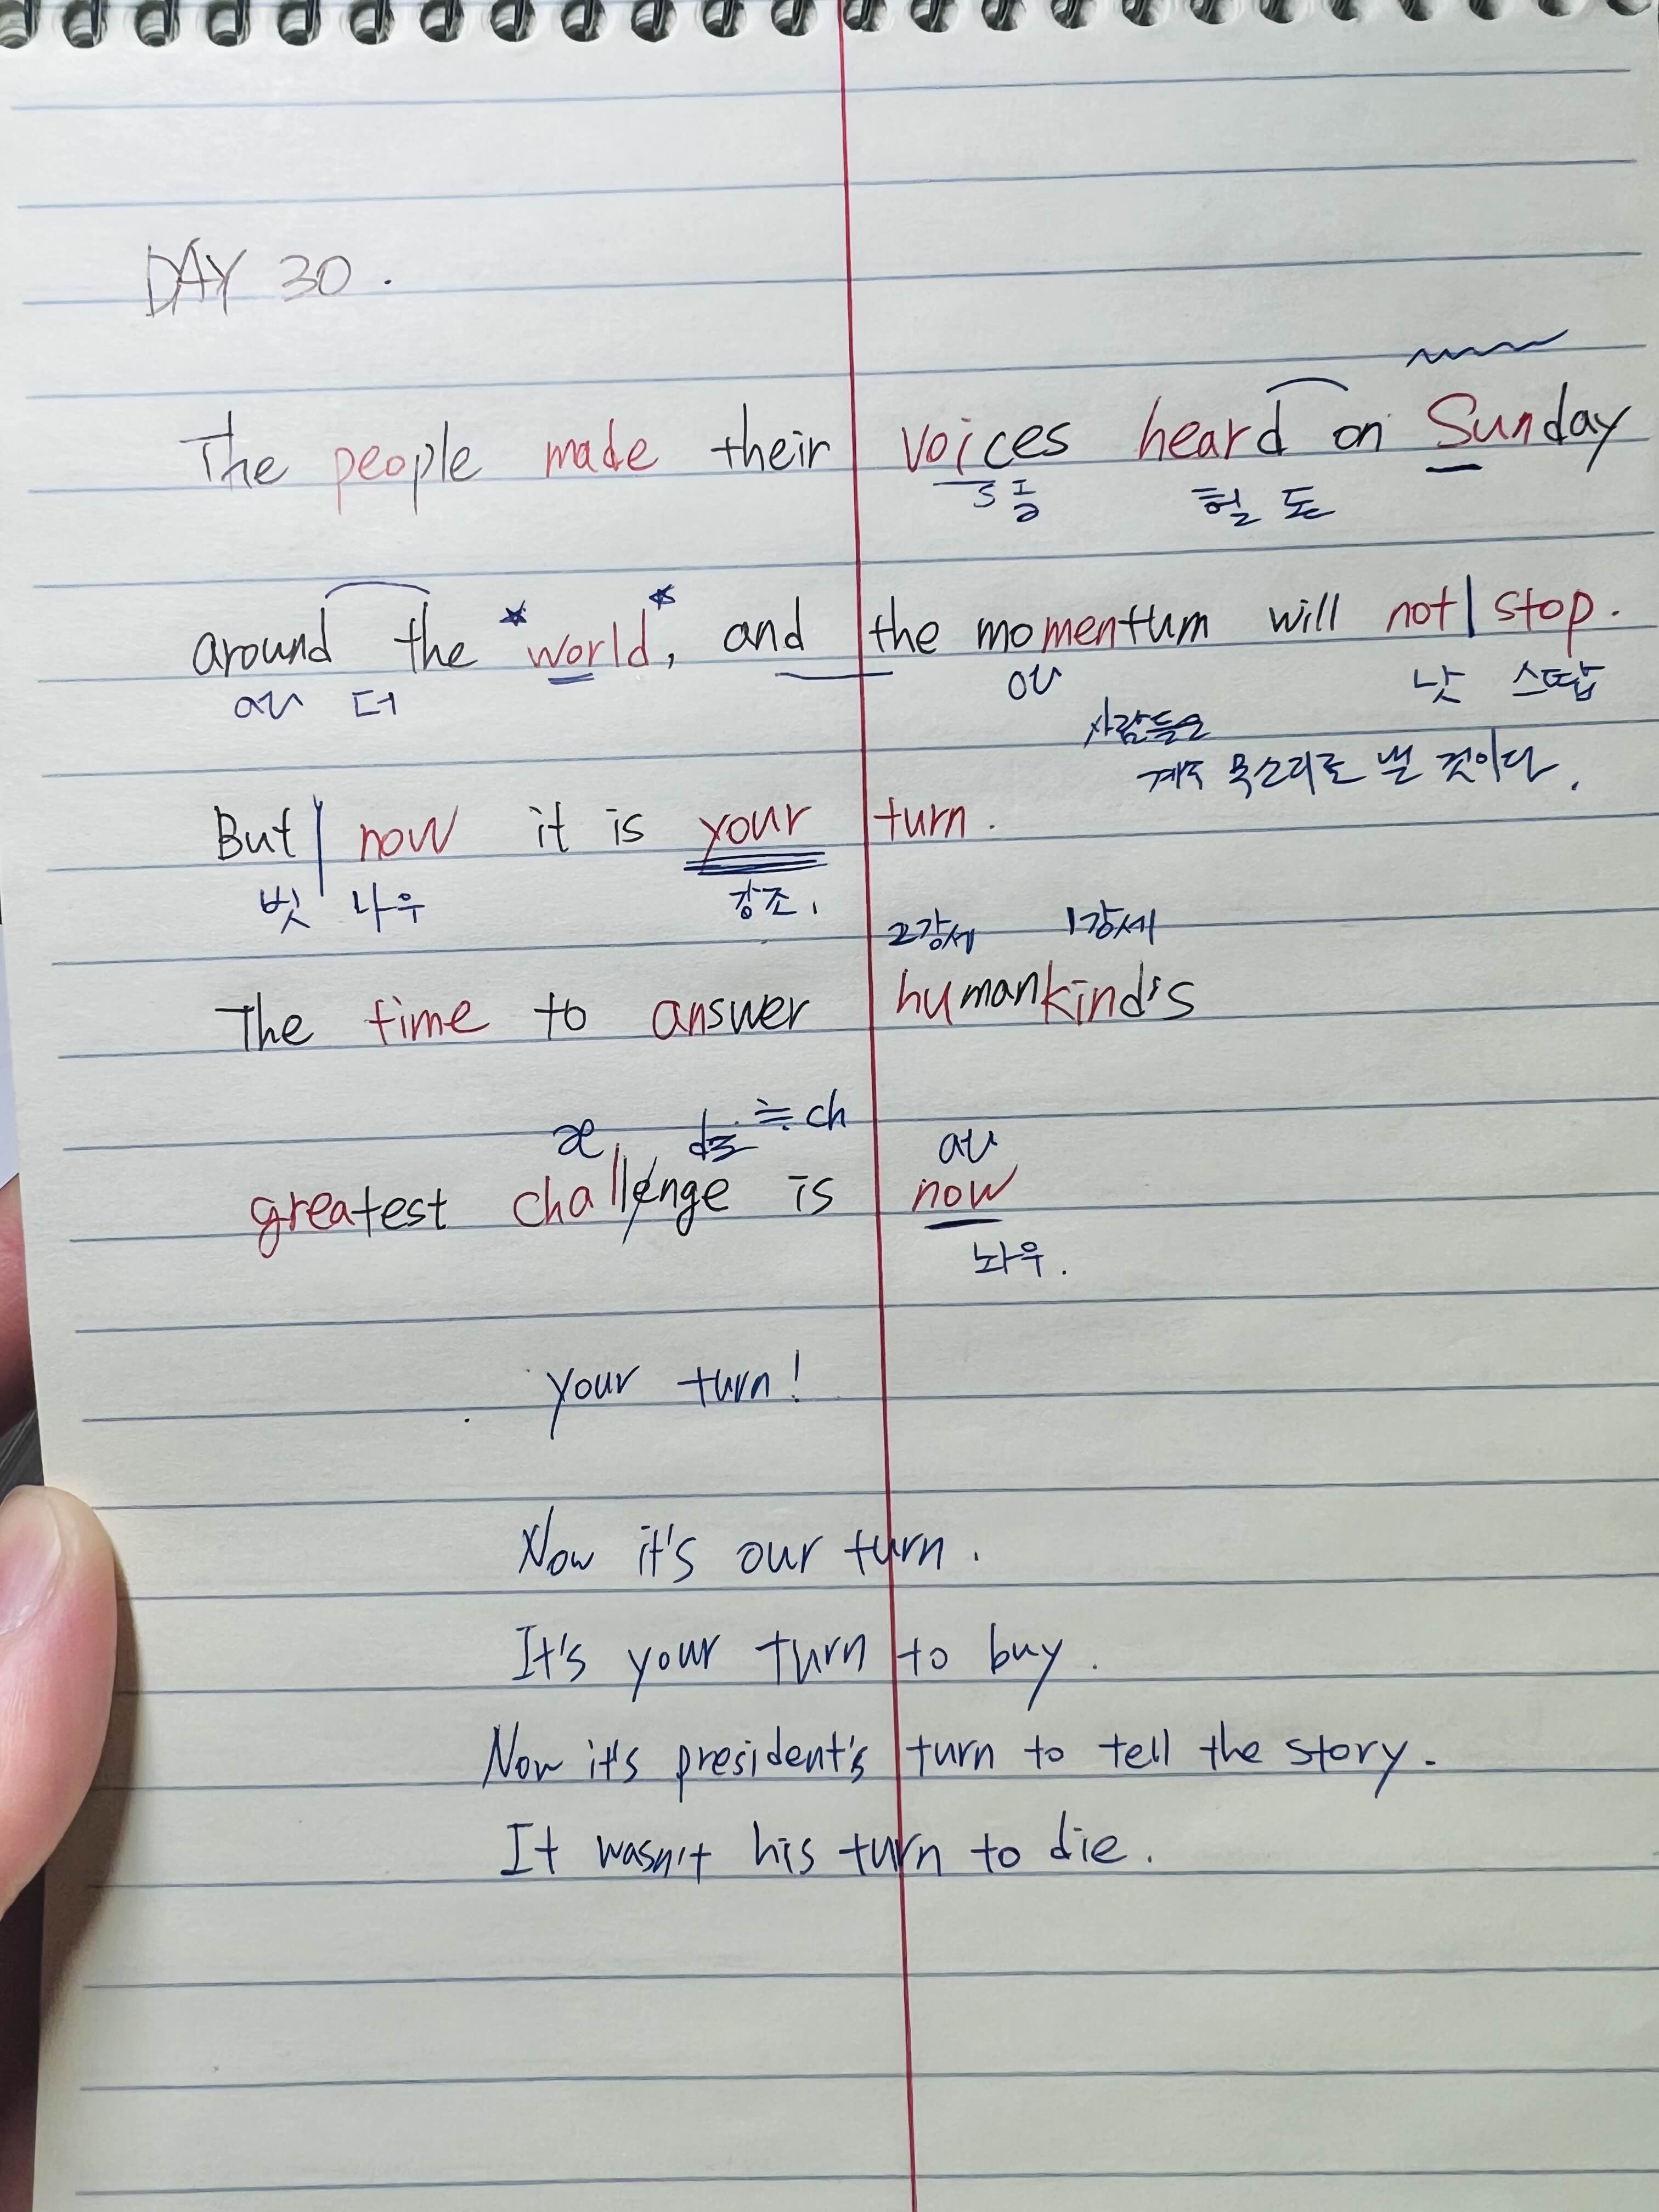 DAY 30.
The people made their voices heard on Sunday
헐 돈
around the *world*, and the momentum will not | stop.
aʊ 더 oʊ 낫 스땁
사람들은
계속 목소리를 낼 것이다.
But | now it is your turn.
벗 나우 강조.
2강세 1강세
The time to answer humankind's
æ dʒ ≒ ch aʊ
greatest challenge is now
놔우.
your turn!
Now it's our turn.
It's your turn to buy.
Now it's president's turn to tell the story.
It wasn't his turn to die.